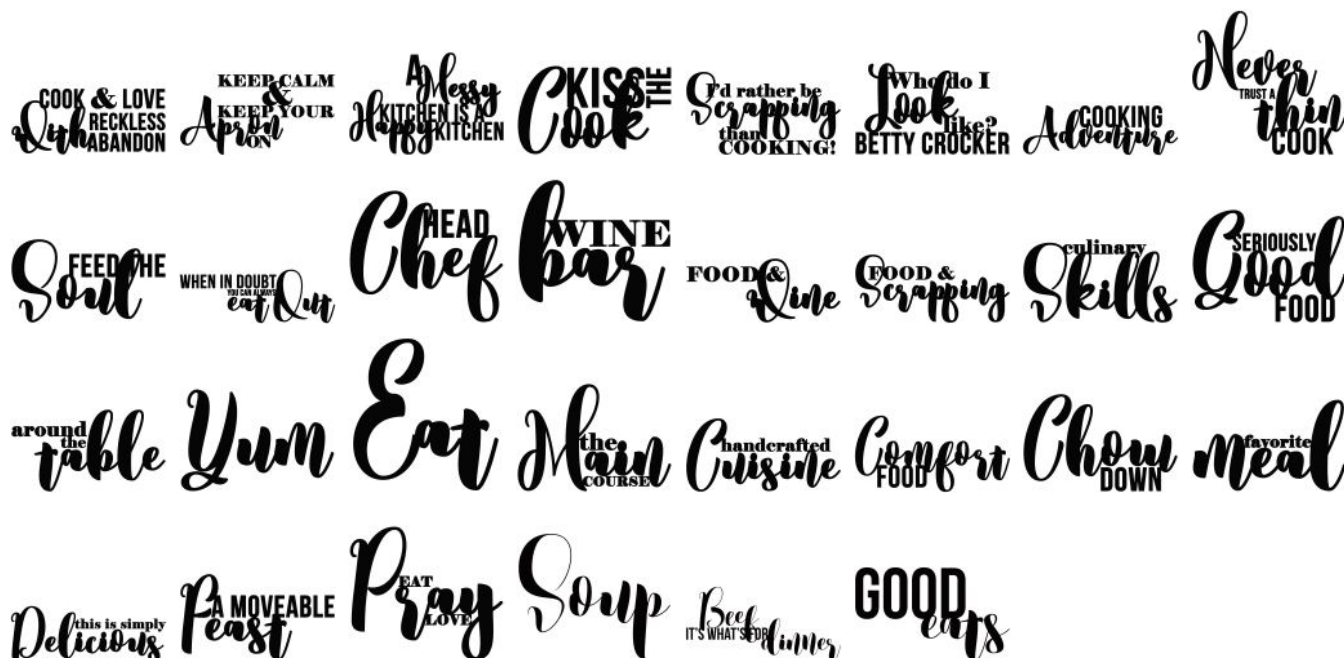 COOK & LOVE
RECKLESS
With ABANDON
KEEP CALM
&
KEEP YOUR
Apron
ON
A Messy
KITCHEN IS A
Happy KITCHEN
KISS THE
Cook
I'd rather be
Scrapping
than
COOKING!
Who do I
Look
like?
BETTY CROCKER
COOKING
Adventure
Never
TRUST A
thin
COOK
FEED THE
Soul
WHEN IN DOUBT
YOU CAN ALWAYS
eat Out
HEAD
Chef
WINE
bar
FOOD &
Wine
FOOD &
Scrapping
culinary
Skills
SERIOUSLY
Good
FOOD
around
the
table
Yum
Eat
the
Main
COURSE
handcrafted
Cuisine
Comfort
FOOD
Chow
DOWN
favorite
meal
this is simply
Delicious
A MOVEABLE
Feast
EAT
Pray
LOVE
Soup
Beef
IT'S WHAT'S FOR
dinner
GOOD
eats